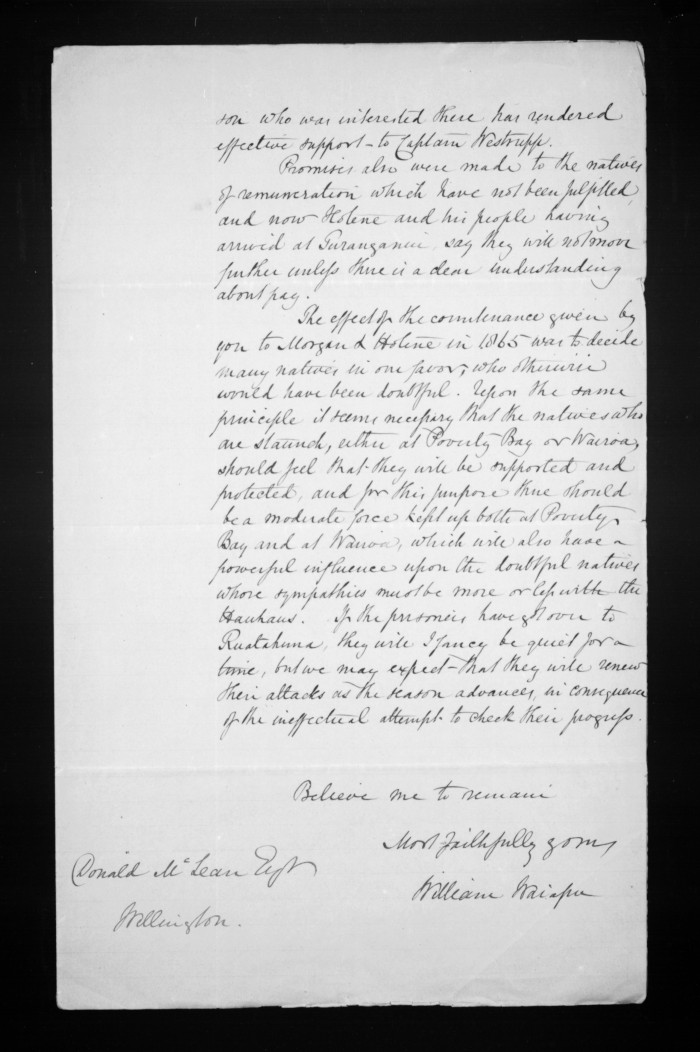 son who was interested there has rendered
effective support to Captain Westrupp.
Promises also were made to the natives
of remuneration which have not been fulfilled,
and now Hotene and his people having
arrived at Turanganui, say they will not move
further unless there is a clear understanding
about pay.
The effect of the countenance given by
you to Morgan & Hotene in 1865 was to decide
many natives in our favor, who otherwise
would have been doubtful. Upon the same
principle it seems necessary that the natives who
are staunch, either at Poverty Bay or Wairoa,
should feel that they will be supported and
protected, and for this purpose there should
be a moderate force kept up both at Poverty
Bay and at Wairoa, which will also have a
powerful influence upon the doubtful natives
whose sympathies must be more or less with the
Hauhaus. If the prisoners have got over to
Ruatahuna, they will I fancy be quiet for a
time, but we may expect that they will renew
their attacks as the season advances, in consequence
of the ineffectual attempt to check their progress.
Believe me to remain
Most faithfully yours
William Waiapu
Donald McLean Esqr
Wellington.